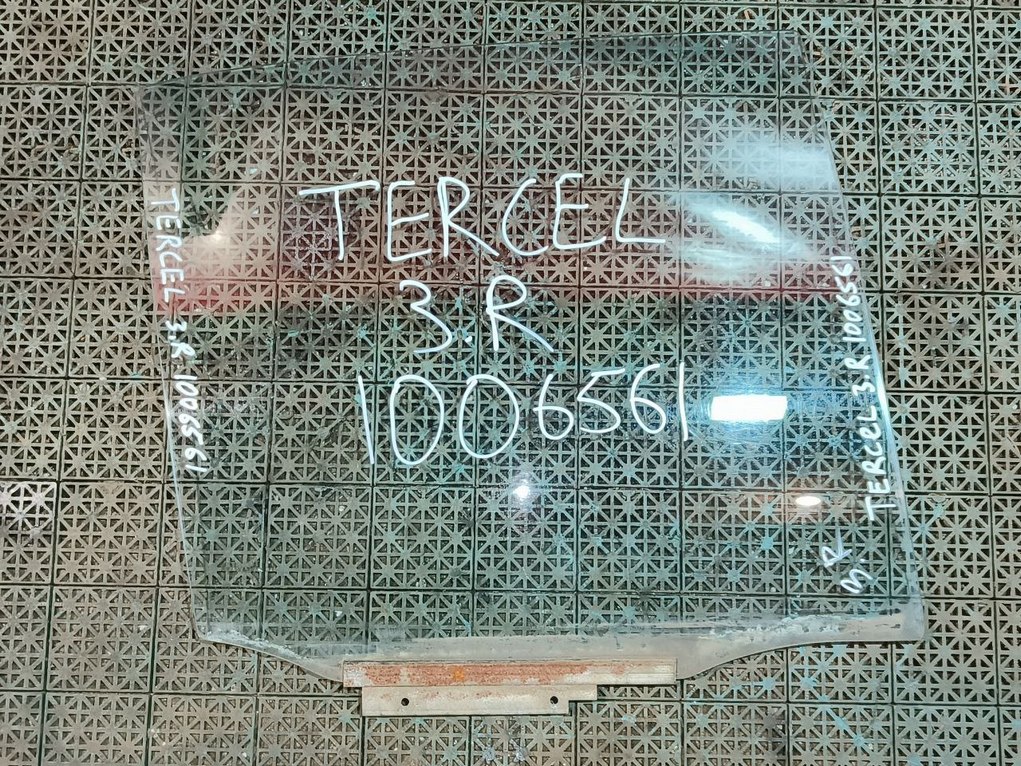 TERCEL
3.R
1006561
TERCEL 3.R 1006561
TERCEL 3.R 1006561
3R